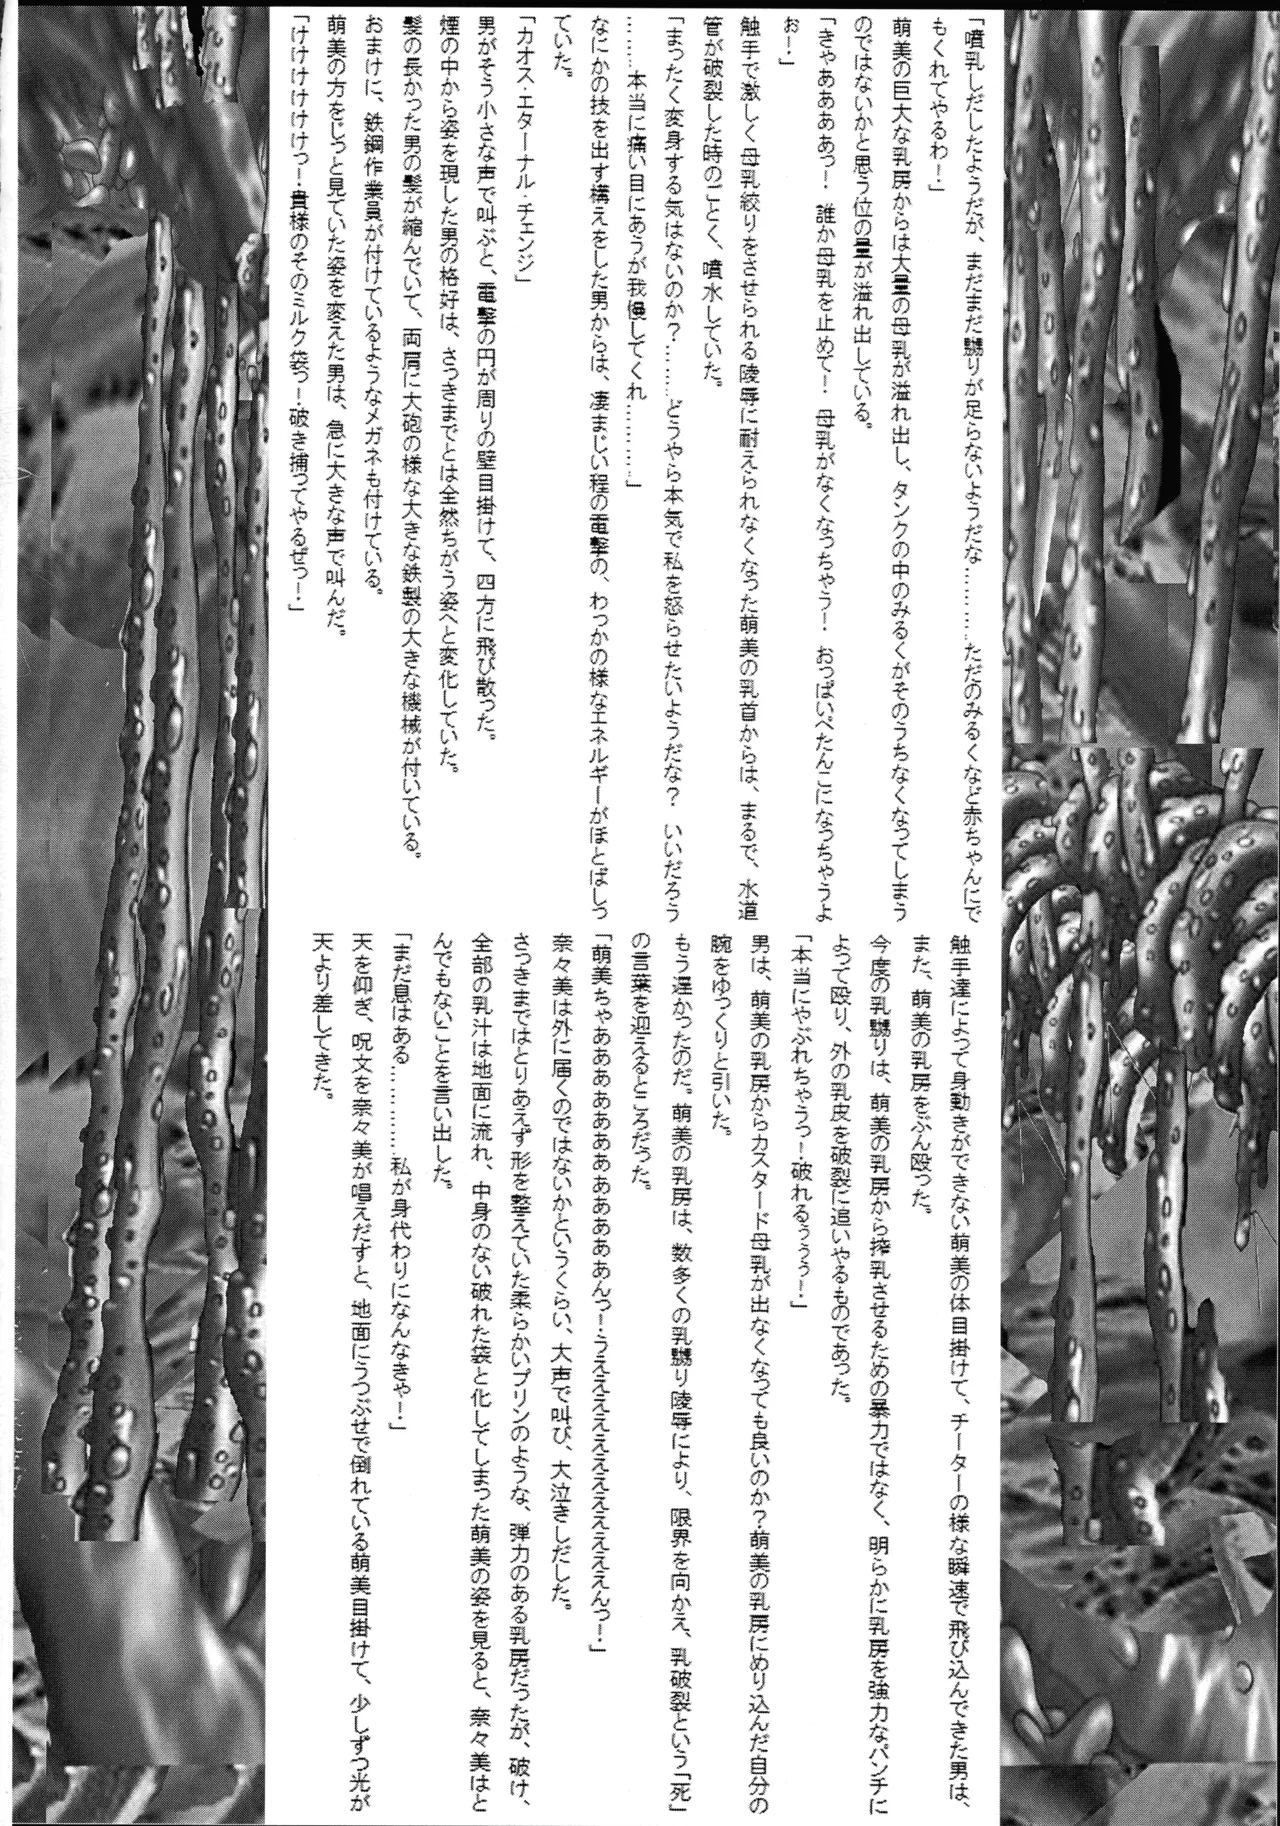 「噴乳しだしたようだが、まだまだ嬲りが足らないようだな…………ただのみるくなど赤ちゃんにで
もくれてやるわ！」
萌美の巨大な乳房からは大量の母乳が溢れ出し、タンクの中のみるくがそのうちなくなってしまう
のではないかと思う位の量が溢れ出している。
「きゃああああっ！　誰か母乳を止めて！　母乳がなくなっちゃう！　おっぱいぺたんこになっちゃうよ
ぉ！」
触手で激しく母乳絞りをさせられる陵辱に耐えられなくなった萌美の乳首からは、まるで、水道
管が破裂した時のごとく、噴水していた。
「まったく変身する気はないのか？………どうやら本気で私を怒らせたいようだな？　いいだろう
………本当に痛い目にあうが我慢してくれ…………」
なにかの技を出す構えをした男からは、凄まじい程の電撃の、わっかの様なエネルギーがほとばしっ
ていた。
「カオス・エターナル・チェンジ」
男がそう小さな声で叫ぶと、電撃の円が周りの壁目掛けて、四方に飛び散った。
煙の中から姿を現した男の格好は、さっきまでとは全然ちがう姿へと変化していた。
髪の長かった男の髪が縮んでいて、両肩に大砲の様な大きな鉄製の大きな機械が付いている。
おまけに、鉄鋼作業員が付けているようなメガネも付けている。
萌美の方をじっと見ていた姿を変えた男は、急に大きな声で叫んだ。
「けけけけけけっー・貴様のそのミルク袋っー破き捕ってやるぜっー・」
触手達によって身動きができない萌美の体目掛けて、チーターの様な瞬速で飛び込んできた男は、
また、萌美の乳房をぶん殴った。
今度の乳嬲りは、萌美の乳房から搾乳させるための暴力ではなく、明らかに乳房を強力なパンチに
よって殴り、外の乳皮を破裂に追いやるものであった。
「本当にやぶれちゃうっー・破れるぅぅぅー・」
男は、萌美の乳房からカスタード母乳が出なくなっても良いのか？萌美の乳房にめり込んだ自分の
腕をゆっくりと引いた。
もう遅かったのだ。萌美の乳房は、数多くの乳嬲り陵辱により、限界を向かえ、乳破裂という「死」
の言葉を迎えるところだった。
奈々美は外に届くのではないかというくらい、大声で叫び、大泣きしだした。
さっきまではとりあえず形を整えていた柔らかいプリンのような、弾力のある乳房だったが、破け、
全部の乳汁は地面に流れ、中身のない破れた袋と化してしまった萌美の姿を見ると、奈々美はと
んでもないことを言い出した。
「まだ息はある…………私が身代わりになんなきゃー・」
天を仰ぎ、呪文を奈々美が唱えだすと、地面にうつぶせで倒れている萌美目掛けて、少しずつ光が
天より差してきた。